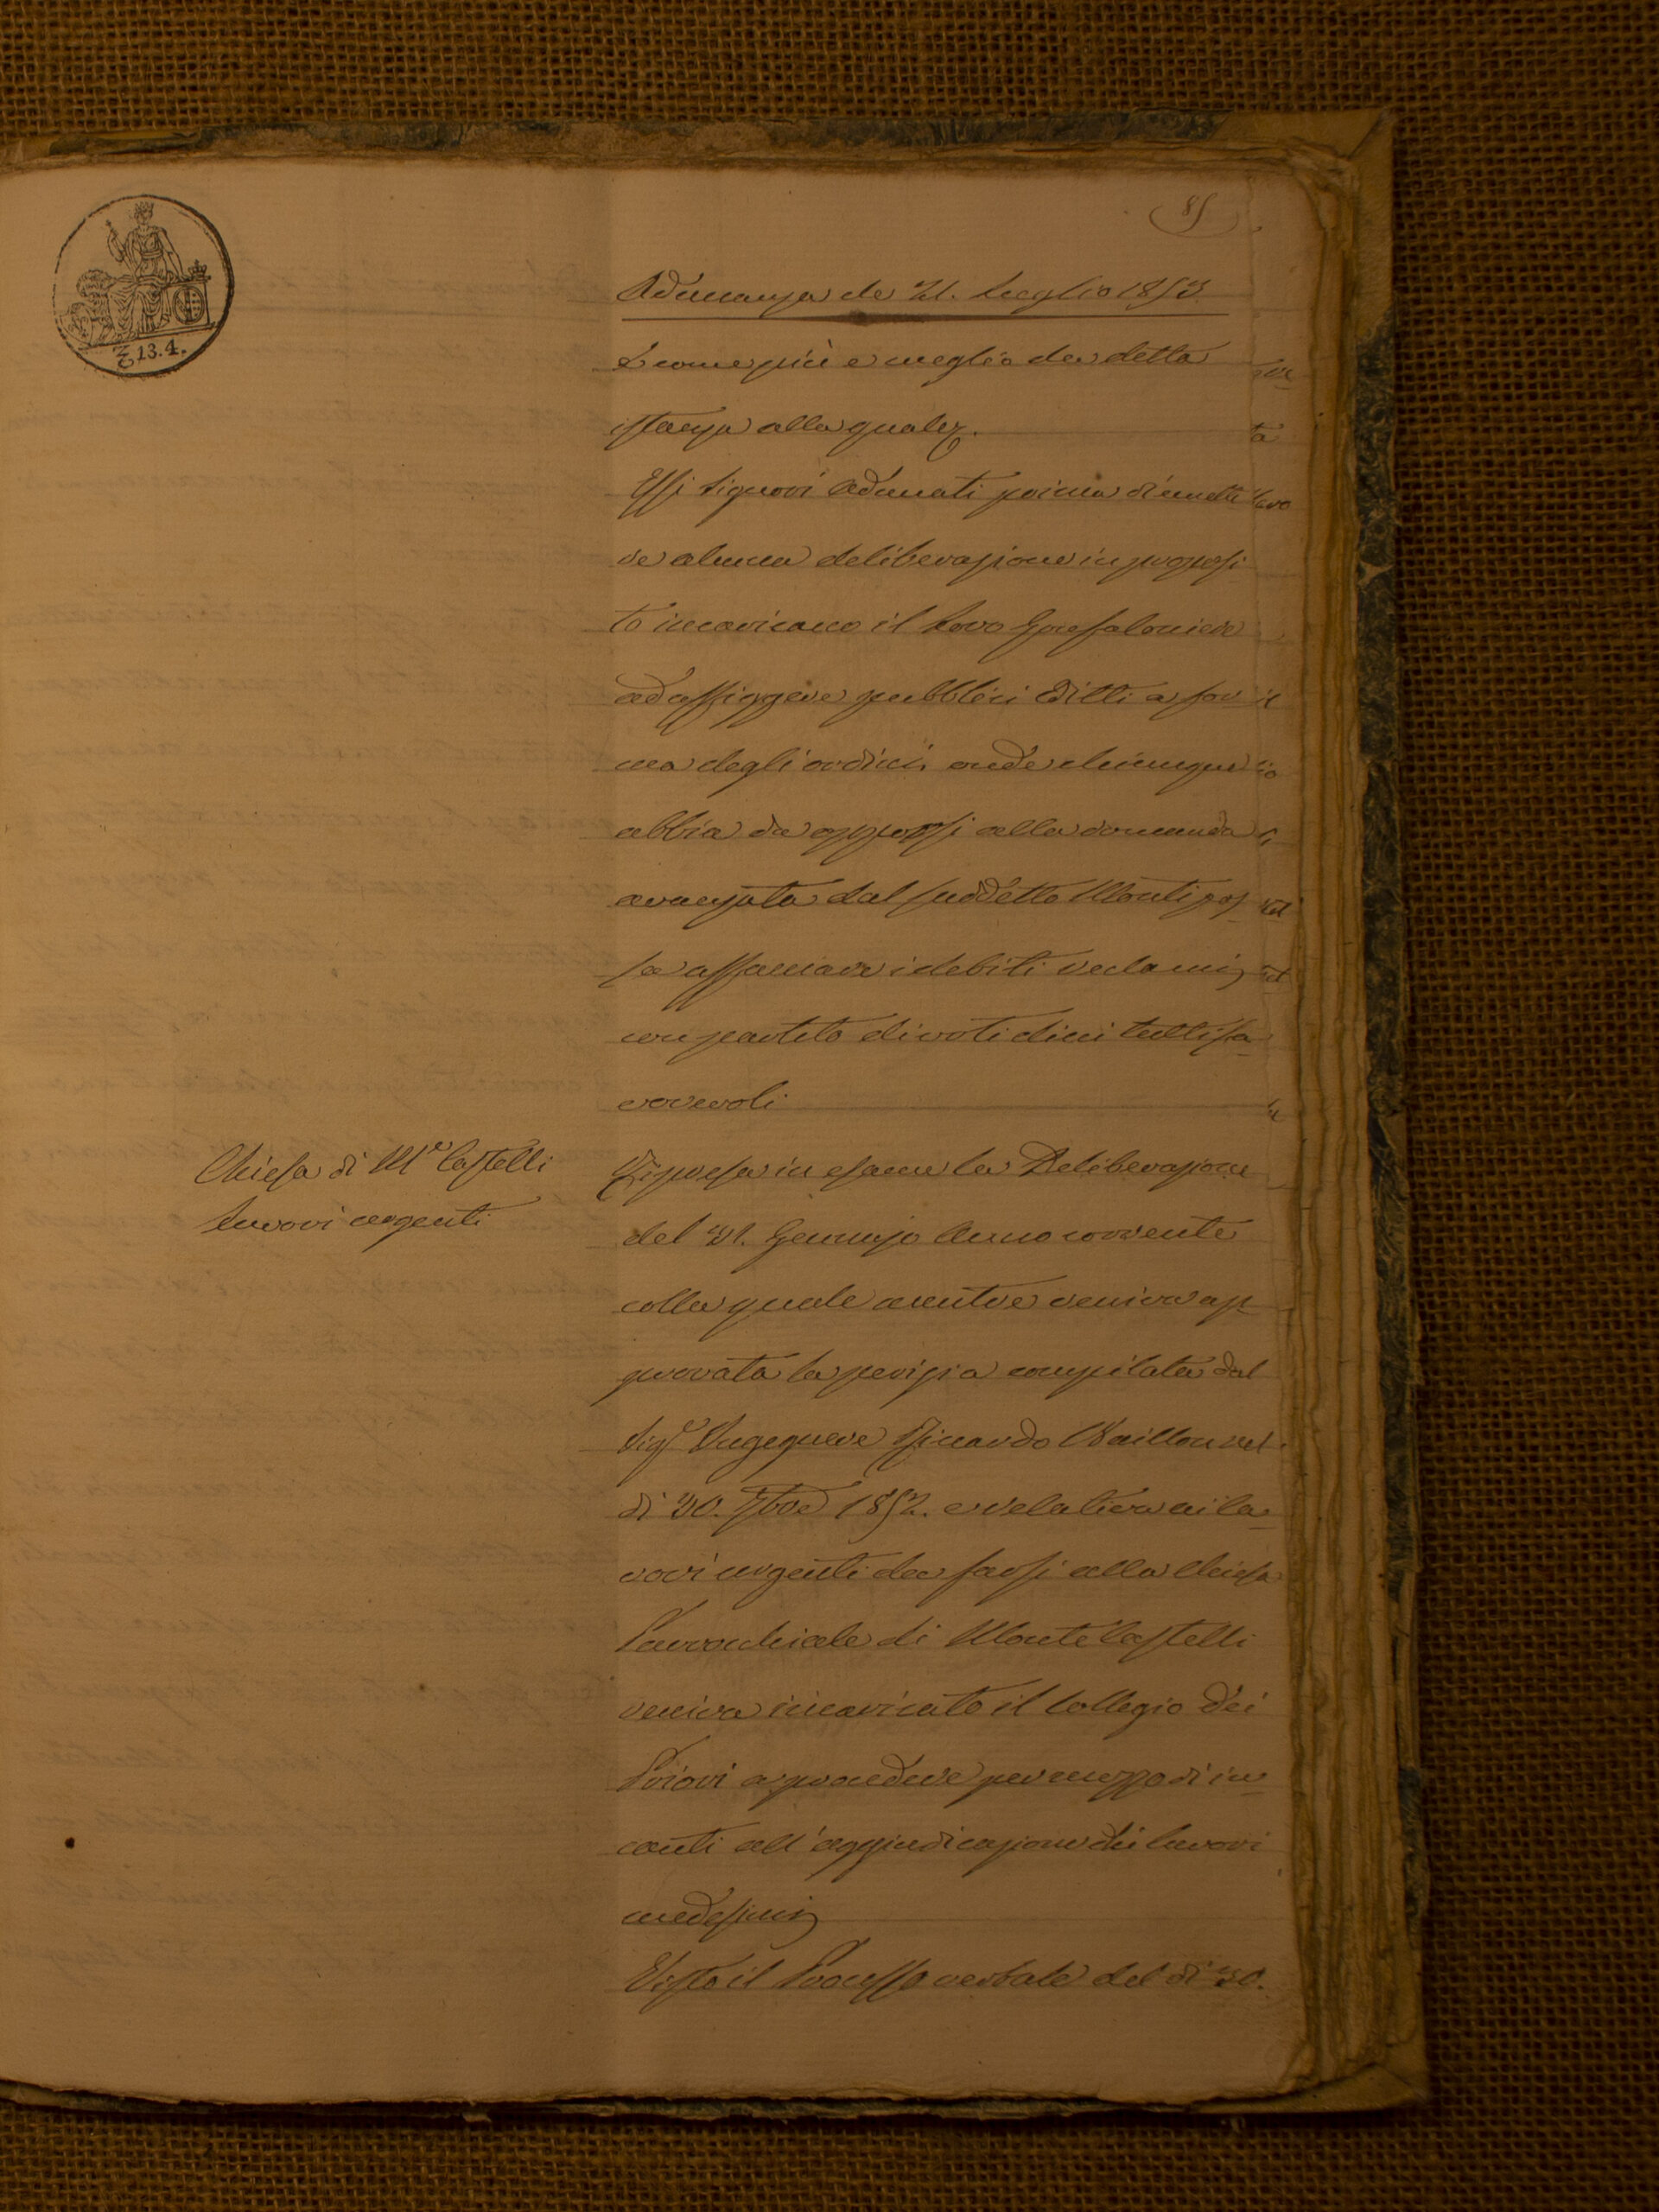 85
13.4.
Adunanza de 21. Luglio 1853.
E come più e meglio da detta
istanza alla quale &.
Essi Signori Adunati prima di emette
re alcuna deliberazione in proposi
to incaricano il loro Gonfaloniere
ad affiggere pubblici Editti a for
ma degli ordini, onde chiunque
abbia da opporsi alla domanda
avanzata dal suddetto Monti pos
sa affacciare i debiti reclami,
con partito di voti dieci tutti fa
vorevoli
Chiesa di M.e Castelli
Lavori urgenti
Ripresa in esame la Deliberazione
del 31. Gennajo Anno corrente
colla quale mentre veniva ap
provata la perizia compilata dal
Sig.r Ingegnere Riccardo Baillou nel
dì 30. 7bre 1852. e relativa ai la
vori urgenti da farsi alla Chiesa
Parrochiale di Monte Castelli
veniva incaricato il Collegio dei
Priori a procedere per mezzo di in
canti all'aggiudicazione dei lavori
medesimi,
Visto il Processo verbale del dì 30.